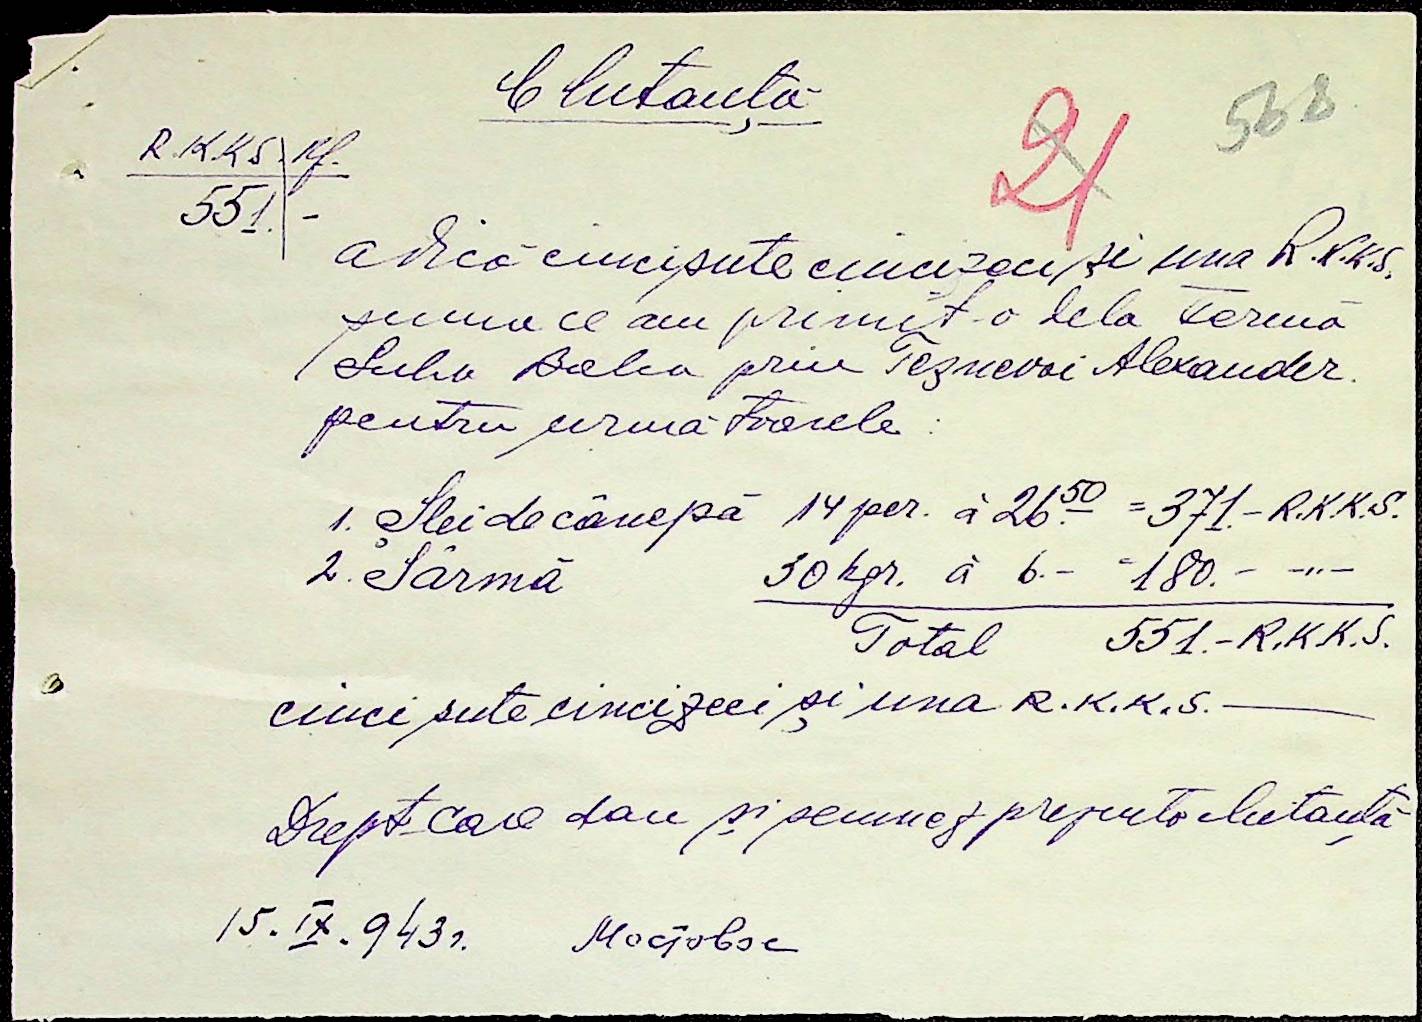 Chitanță
21
568
R.K.K.S. Pf.
551. -
adică cincisute cincizeci și una R.K.K.S.
suma ce am primit-o dela Fermă
Suha Balca prin Alexander.
pentru următoarele :
1. Șlei de cânepă 14 per. à 26.50 = 371.- R.K.K.S.
2. Sârmă 30 kgr. à 6.- = 180.- -"-
Total 551.- R.K.K.S.
cinci sute cincizeci și una R.K.K.S.
Drept care dau și semnez prezenta chitanță
15.IX.943 г.